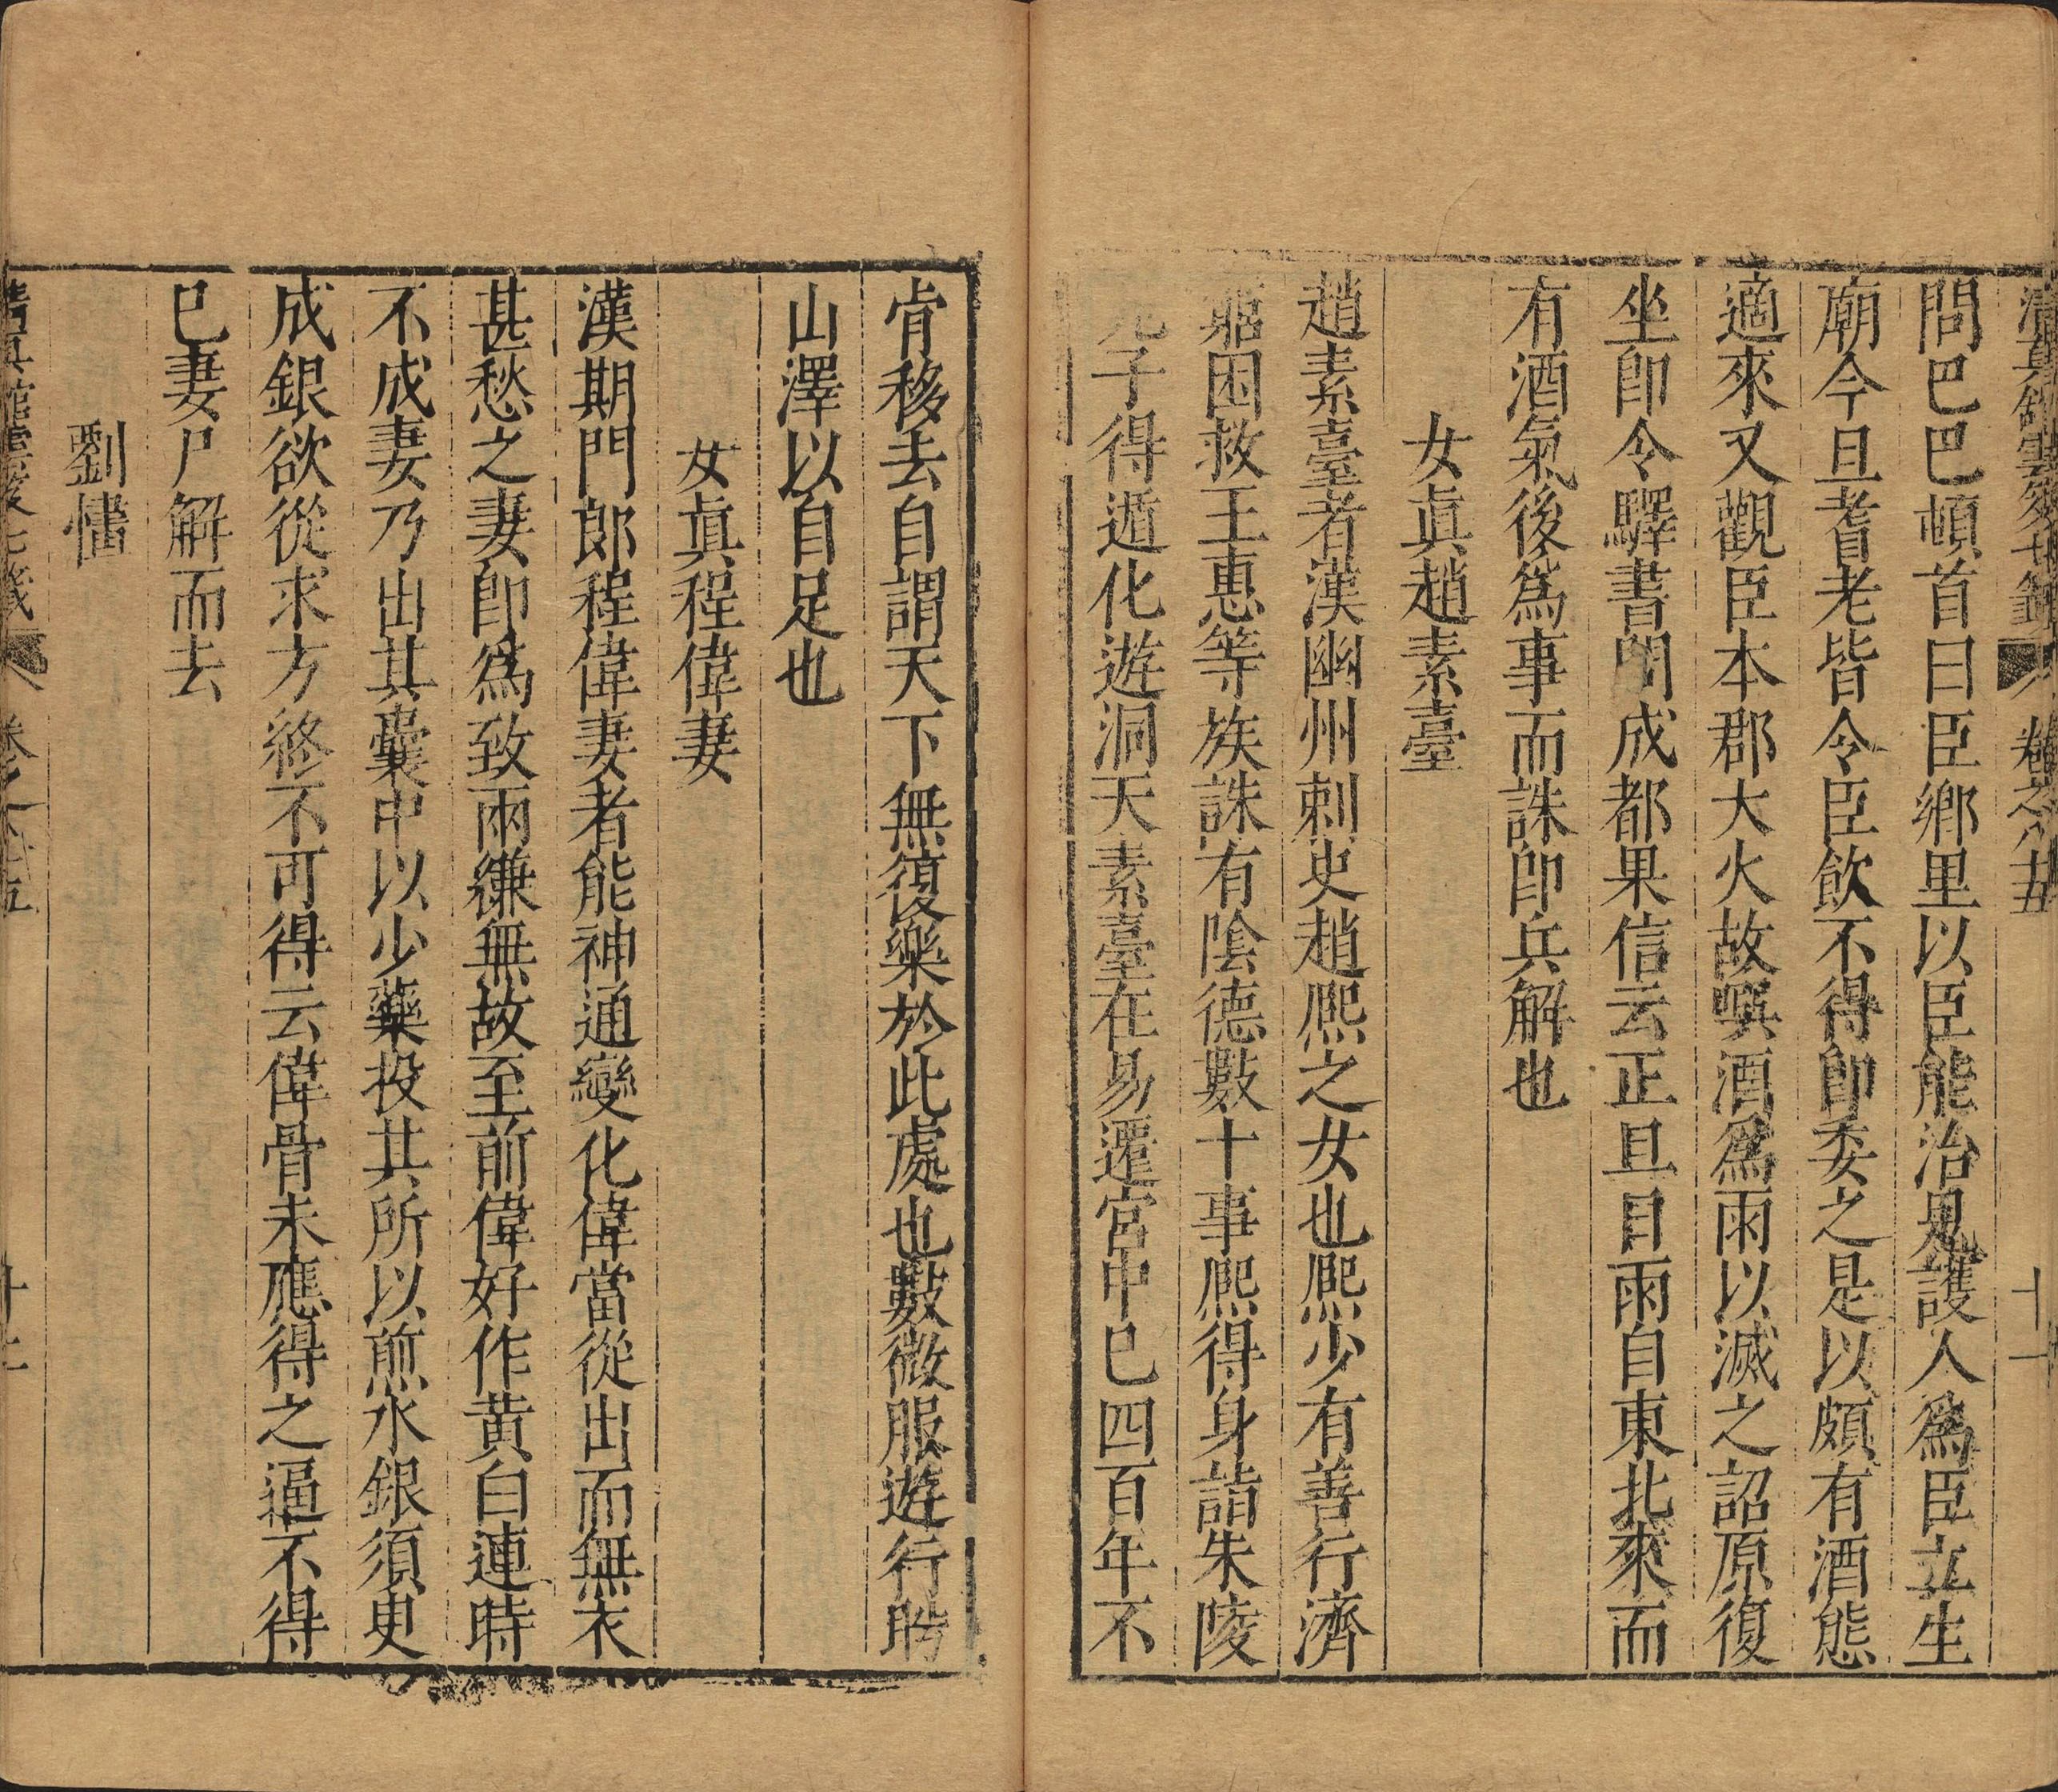 清真館雲笈七籤 卷之八十五 十一
問巴巴頓首曰臣鄉里以臣能治鬼護人爲臣立生
廟今旦耆老皆令臣飲不得卽委之是以頗有酒態
適來又觀臣本郡大火故噀酒爲雨以滅之詔原復
坐卽令驛書問成都果信云正旦日雨自東北來而
有酒氣後爲事而誅卽兵解也
女眞趙素臺
趙素臺者漢幽州刺史趙熈之女也熈少有善行濟
窮困救王惠等族誅有陰德數十事熈得身詣朱陵
兒子得遁化遊洞天素臺在易遷宮中巳四百年不
肯移去自謂天下無復樂於此處也數微服遊行盻
山澤以自足也
女眞程偉妻
漢期門郎程偉妻者能神通變化偉當從出而無衣
甚愁之妻卽爲致兩縑無故至前偉好作黃白連時
不成妻乃出其囊中以少藥投其所以煎水銀須臾
成銀欲從求方終不可得云偉骨未應得之逼不得
巳妻尸解而去
劉憻
清眞館雲笈七籤 卷之八十五